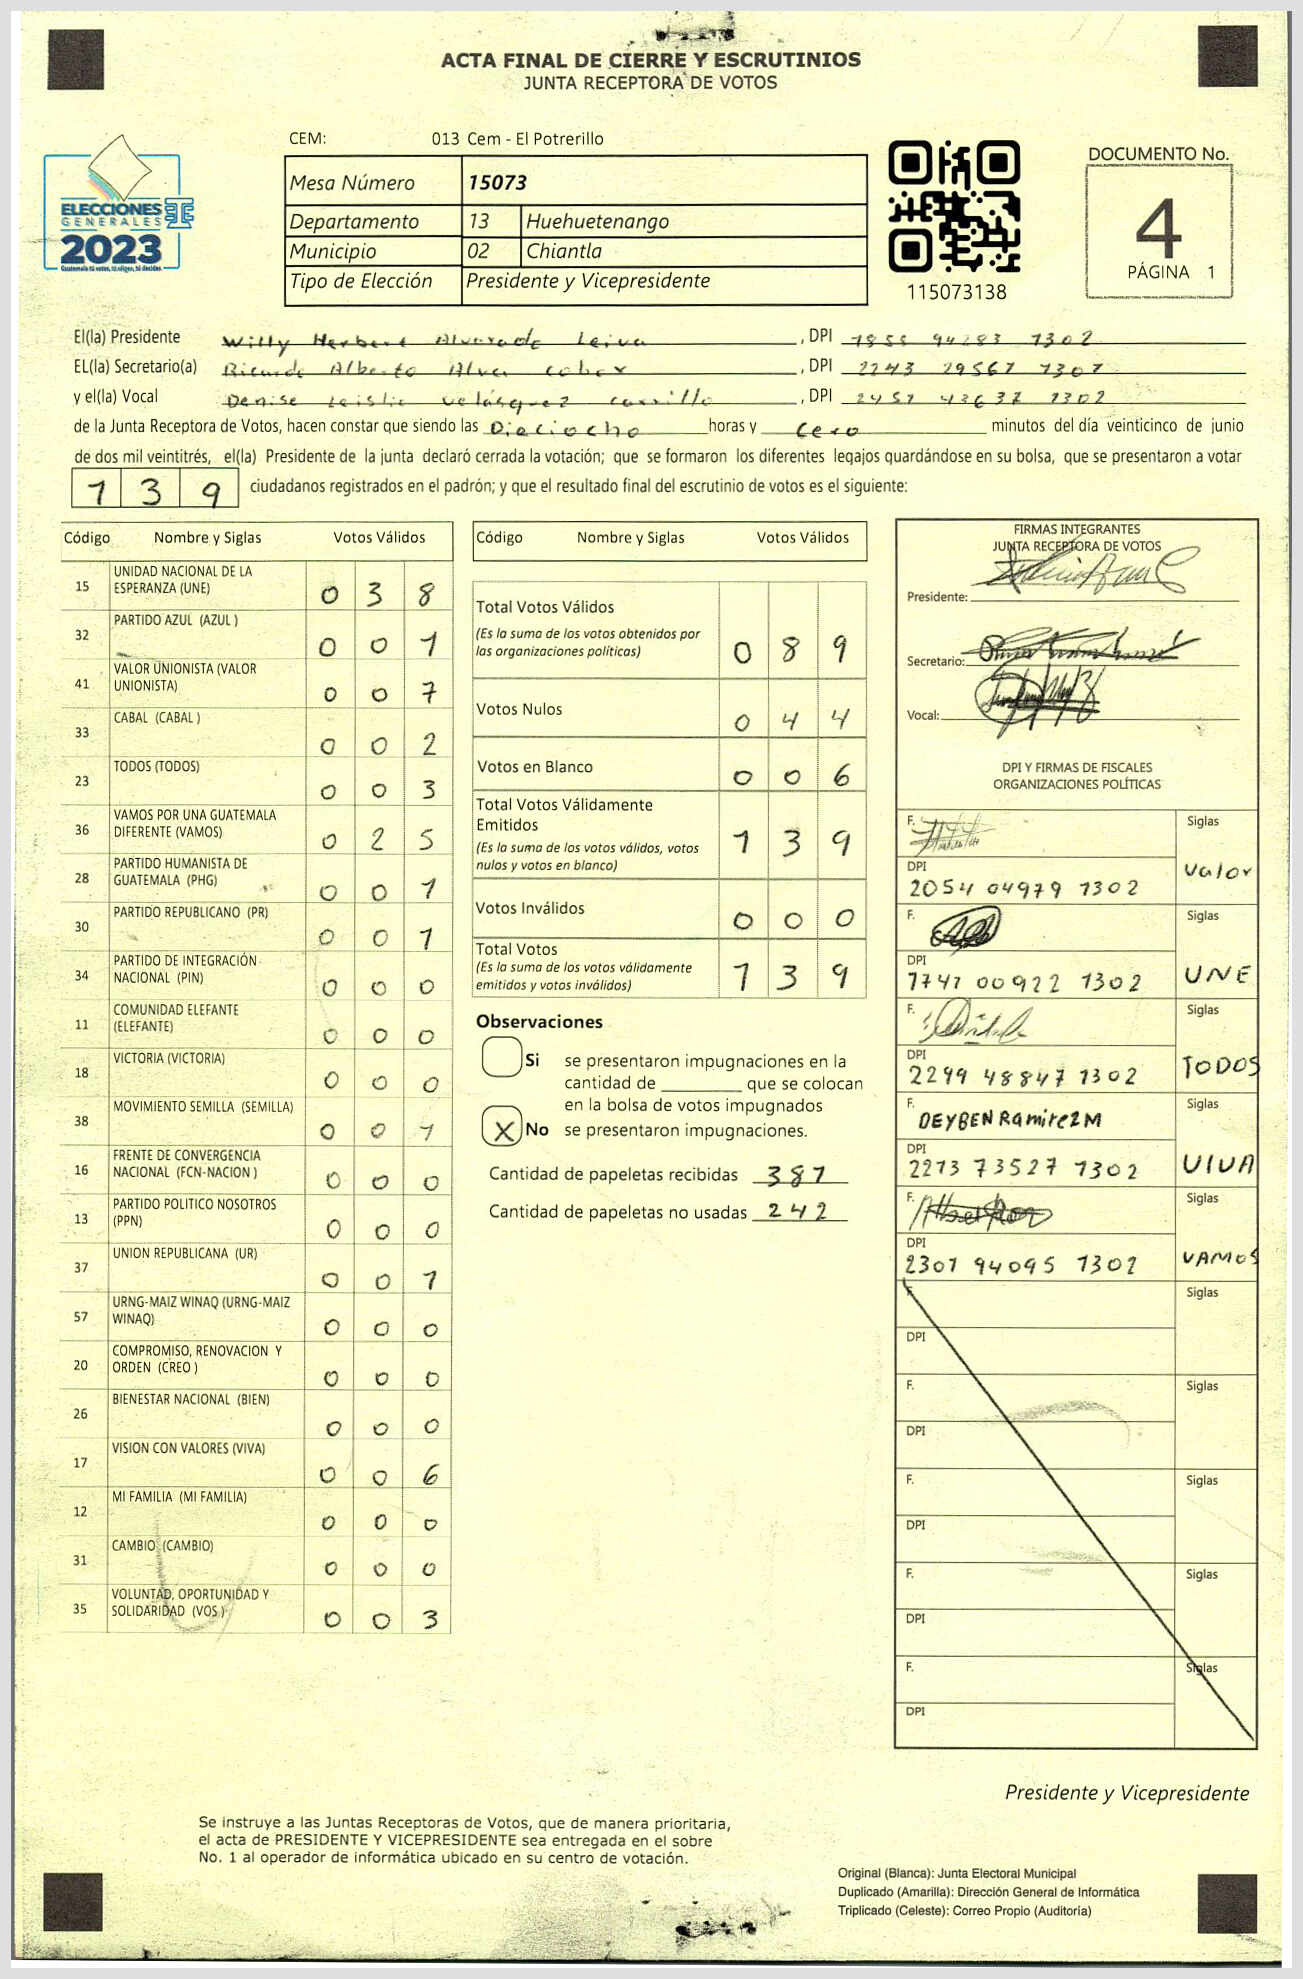 ACTA FINAL DE CIERRE Y ESCRUTINIOS
JUNTA RECEPTORA DE VOTOS
CEM: 013 Cem - El Potrerillo
ELECCIONES
GENERALES
2023
Guatemala tú votas, tú eliges, tú decides
Mesa Número 15073
Departamento 13 Huehuetenango
Municipio 02 Chiantla
Tipo de Elección Presidente y Vicepresidente
115073138
DOCUMENTO No.
4
PÁGINA 1
El(la) Presidente Willy Herbert Alvarado Leiva, DPI 1302
EL(la) Secretario(a) Ricardo Alberto Alva, DPI 2243 29567
y el(la) Vocal Denise Leislie Velásquez Carrillo, DPI 2457 1302
de la Junta Receptora de Votos, hacen constar que siendo las Dieciocho horas y cero minutos del día veinticinco de junio
de dos mil veintitrés, el(la) Presidente de la junta declaró cerrada la votación; que se formaron los diferentes legajos guardándose en su bolsa, que se presentaron a votar
139 ciudadanos registrados en el padrón; y que el resultado final del escrutinio de votos es el siguiente:
Código Nombre y Siglas Votos Válidos
15 UNIDAD NACIONAL DE LA ESPERANZA (UNE) 0 3 8
32 PARTIDO AZUL (AZUL ) 0 0 1
41 VALOR UNIONISTA (VALOR UNIONISTA) 0 0 7
33 CABAL (CABAL ) 0 0 2
23 TODOS (TODOS) 0 0 3
36 VAMOS POR UNA GUATEMALA DIFERENTE (VAMOS) 0 2 5
28 PARTIDO HUMANISTA DE GUATEMALA (PHG) 0 0 1
30 PARTIDO REPUBLICANO (PR) 0 0 1
34 PARTIDO DE INTEGRACIÓN NACIONAL (PIN) 0 0 0
11 COMUNIDAD ELEFANTE (ELEFANTE) 0 0 0
18 VICTORIA (VICTORIA) 0 0 0
38 MOVIMIENTO SEMILLA (SEMILLA) 0 0 1
16 FRENTE DE CONVERGENCIA NACIONAL (FCN-NACION ) 0 0 0
13 PARTIDO POLITICO NOSOTROS (PPN) 0 0 0
37 UNION REPUBLICANA (UR) 0 0 1
57 URNG-MAIZ WINAQ (URNG-MAIZ WINAQ) 0 0 0
20 COMPROMISO, RENOVACION Y ORDEN (CREO ) 0 0 0
26 BIENESTAR NACIONAL (BIEN) 0 0 0
17 VISION CON VALORES (VIVA) 0 0 6
12 MI FAMILIA (MI FAMILIA) 0 0 0
31 CAMBIO (CAMBIO) 0 0 0
35 VOLUNTAD, OPORTUNIDAD Y SOLIDARIDAD (VOS ) 0 0 3
Código Nombre y Siglas Votos Válidos
Total Votos Válidos 0 8 9
(Es la suma de los votos obtenidos por
las organizaciones políticas)
Votos Nulos 0 4 4
Votos en Blanco 0 0 6
Total Votos Válidamente
Emitidos 1 3 9
(Es la suma de los votos válidos, votos
nulos y votos en blanco)
Votos Inválidos 0 0 0
Total Votos 1 3 9
(Es la suma de los votos válidamente
emitidos y votos inválidos)
Observaciones
Si se presentaron impugnaciones en la
cantidad de ________ que se colocan
en la bolsa de votos impugnados
X No se presentaron impugnaciones.
Cantidad de papeletas recibidas 381
Cantidad de papeletas no usadas 242
FIRMAS INTEGRANTES
JUNTA RECEPTORA DE VOTOS
Presidente:
Secretario:
Vocal:
DPI Y FIRMAS DE FISCALES
ORGANIZACIONES POLÍTICAS
F. Siglas
DPI Valor
2054 04979 1302
F. Siglas
DPI UNE
1747 00922 1302
F. Siglas
DPI TODOS
2299 48847 1302
F. DEYBEN Ramirez M Siglas
DPI VIVA
2213 73527 1302
F. Siglas
DPI VAMOS
2301 94095 1302
F. Siglas
DPI
F. Siglas
DPI
F. Siglas
DPI
F. Siglas
DPI
F. Siglas
DPI
Presidente y Vicepresidente
Se instruye a las Juntas Receptoras de Votos, que de manera prioritaria,
el acta de PRESIDENTE Y VICEPRESIDENTE sea entregada en el sobre
No. 1 al operador de informática ubicado en su centro de votación.
Original (Blanca): Junta Electoral Municipal
Duplicado (Amarilla): Dirección General de Informática
Triplicado (Celeste): Correo Propio (Auditoría)